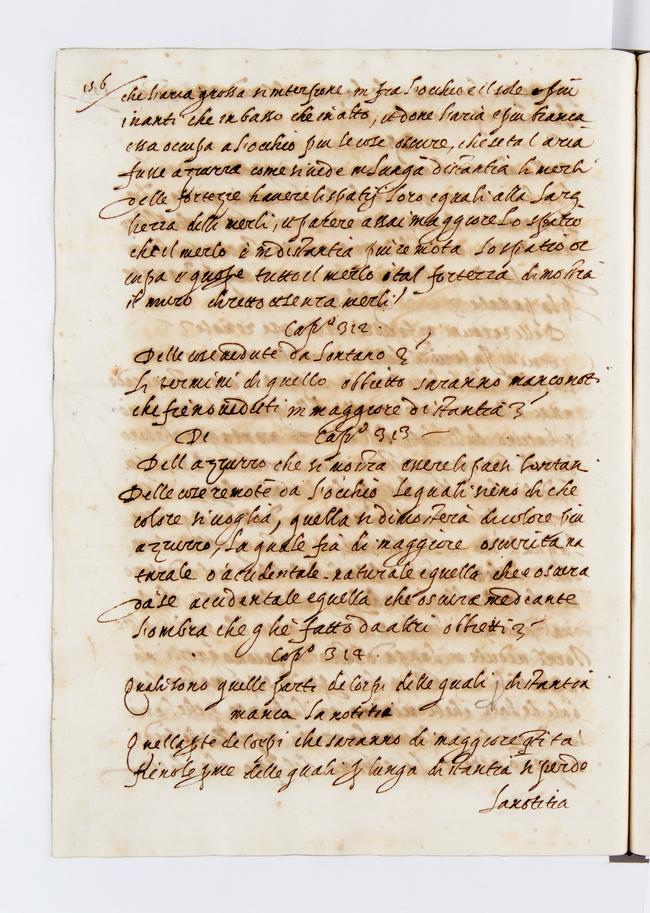 156
che l'aria grossa s'interpone in fra l'occhio e il sole e piu
inanti che in basso che in alto, et doue l'aria e piu bianca
essa occupa a l'occhio piu le cose oscure, che se tal aria
fusse azurra come si uede in lunga distantia li merli
delle fortezze hauere li spatij loro equali alla larg
hezza delli merli, et parere assai maggiore lo spatio
che il merlo e in distantia piu remota lo spatio oc
cupa e tutto il merlo e tal fortezza dimostra
il muro diretto et senza merli
Cap.º 312.
Delle cose uedute da lontano
Li termini di quello obbietto saranno manco noti
che fieno ueduti in maggiore distantia
De Cap.º 313
Dell azurro che si mostra essere li paesi lontani
Delle cose remote da l'occhio le quali sieno di che
colore si uoglia, quella si dimosterà di colore piu
azzurro, la quale fia di maggiore oscurita na
turale o accidentale. naturale e quella che e oscura
da se accidentale e quella che oscura mediante
l'ombra che gli è fatto da altri obbietti
Cap.º 314.
Quali sono quelle parti de corpi delle quali distantia
manca la notitia
Quelle parte de corpi che saranno di maggiore
fieno le prime delle quali per lunga distantia si perde
la notitia